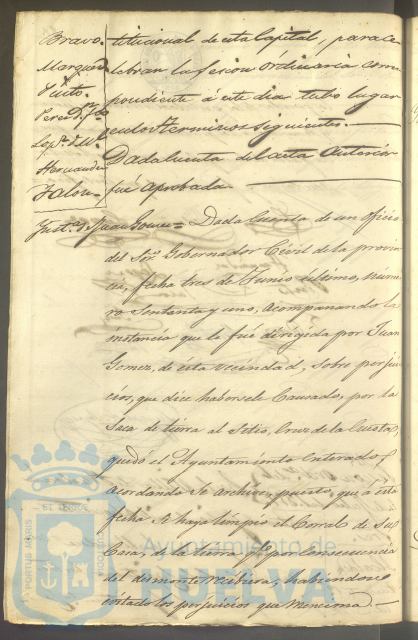 Bravo.
Marquez
Pinto.
Perez D. Jo
Lop.z D. M.
Hernandez
Jalon.
titucional de esta Capital, para ce
lebrar la sesion Ordinaria corres
pondiente á este dia tubo lugar
en los terminos siguientes.
Dada cuenta del acta Anterior
fué aprobada.
Inst.a de Juan Gomez =
Dada Cuenta de un oficio
del Sor. Gobernador Civil de la provin
cia, fecha tres de Junio ultimo, núme
ro Sententa y uno, acompañando la
instancia que le fué dirigida por Juan
Gomez, de esta vecindad, sobre perjui
cios, que dice habersele Causado, por la
Saca de tierra al Sitio, Cruz de la Cuesta;
quedó el Ayuntamiento enterado
Acordando Se Archive, puesto, que á esta
fecha Se haya limpio el Corral de Su
Casa, de la tierra q.e por Consecuencia
del desmonte recibiera, habiendose
cortado los perjuicios que menciona.
PORTUS MARIS
ET TERRE
CUSTODIA
Ayuntamiento de
HUELVA